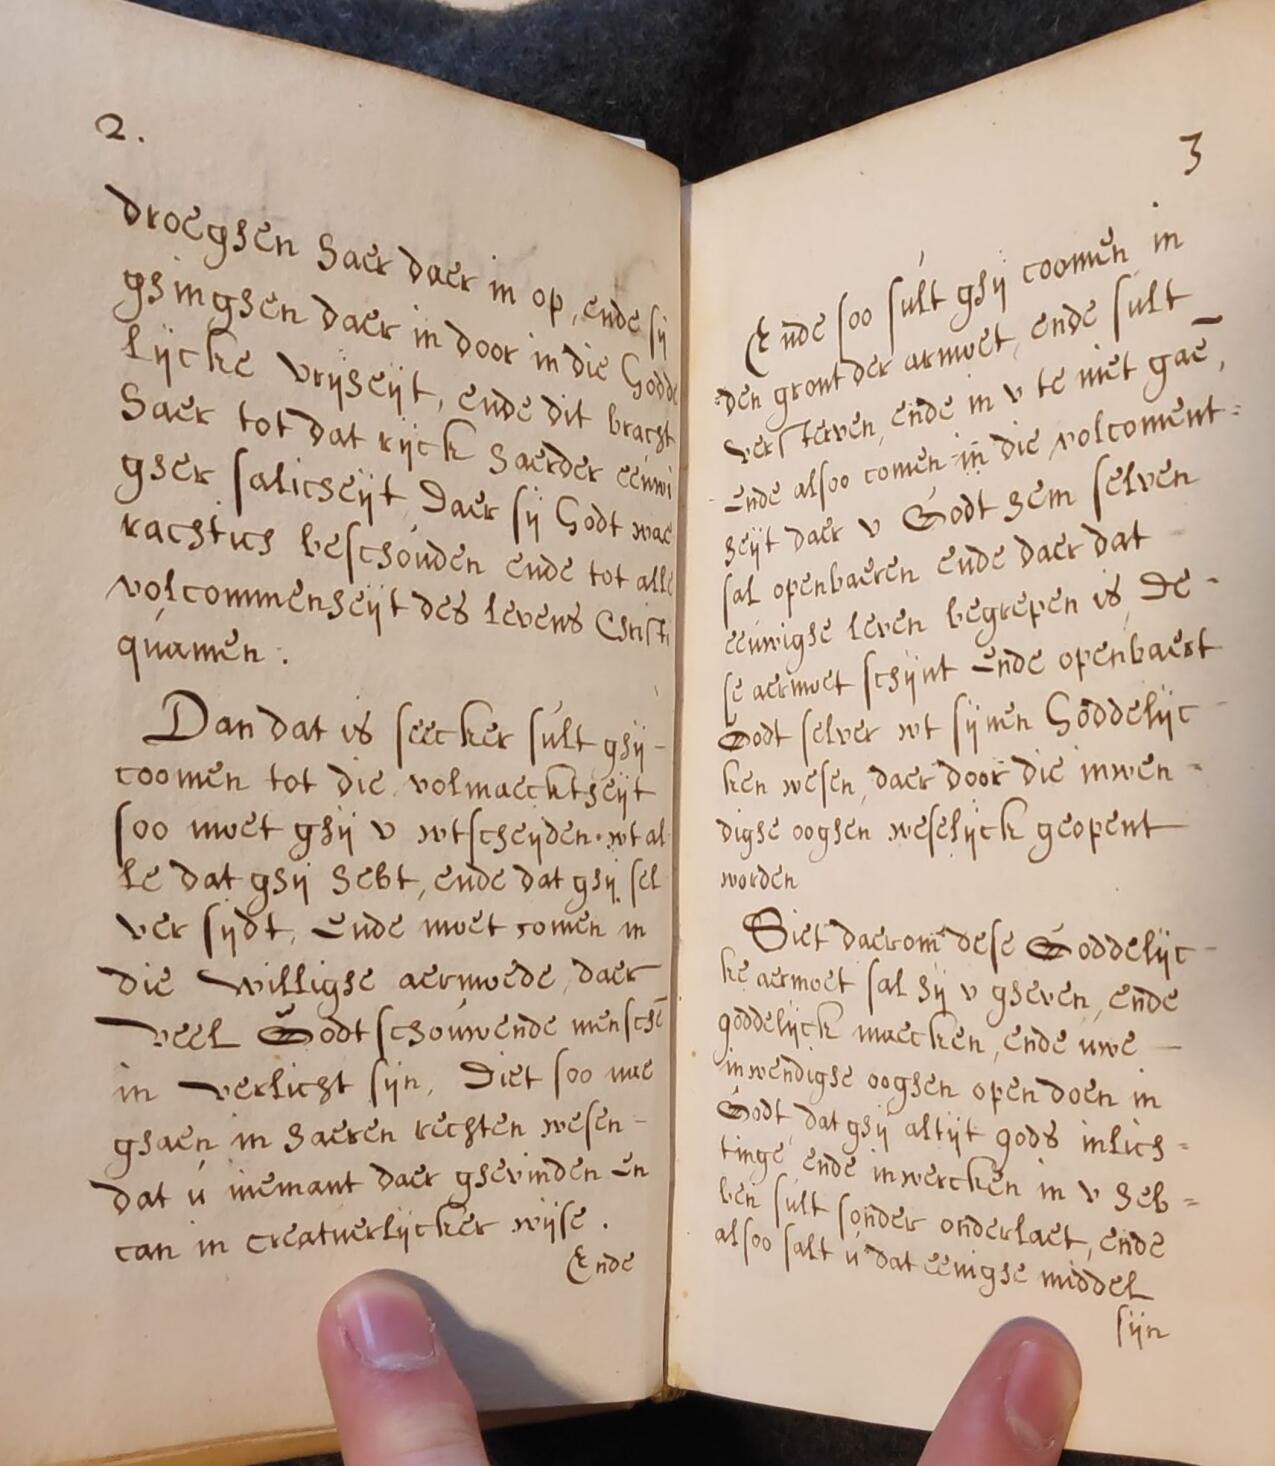 2.
droeghen haer daer in op, ende sij
ghinghen daer in door in die Godde
lijcke vrijheijt, ende dit bracht
haer tot dat rijck haerder eeuwi
gher salicheijt, Daer sij Godt wae
rachtich beschouden ende tot alle
volcommenheijt des levens Christi
quamen.
Dan dat is seecker sult ghij -
coomen tot die volmaecktheijt
soo moet ghij v wtscheijden wt al
le dat ghij hebt, ende dat ghij sel
ver sijdt, Ende moet comen in
die willighe aermoede, daer
veel Godtschouwende menschē
in verlicht sijn, Diet soo nae
ghaen in haeren rechten wesen -
dat ú niemant daer ghevinden En
can in creatuerlijcker wijse.
Ende
3
Ende soo sult ghij coomen in
den gront der armoet, ende sult
versterven, ende in v te niet gaē,
Ende alsoo comen in die volcoment=
heijt daer v Godt hem selven
sal openbaeren ende daer dat
eeuwighe leven begrepen is, De -
se aermoet schijnt Ende openbaert
Godt selver wt sijnen Goddelijc -
ken wesen, daer door die inwen -
dighe ooghen weselijck geopent
worden
Siet daerom dese Goddelijc -
ke aermoet sal hij v gheven, ende
goddelijck maecken, ende uwe -
inwendighe ooghen open doen in
Godt, dat ghij altijt gods inlich=
tinge ende inwercken in v heb=
ben sult sonder onderlaet, ende
alsoo salt ú dat eenighe middel
sijn